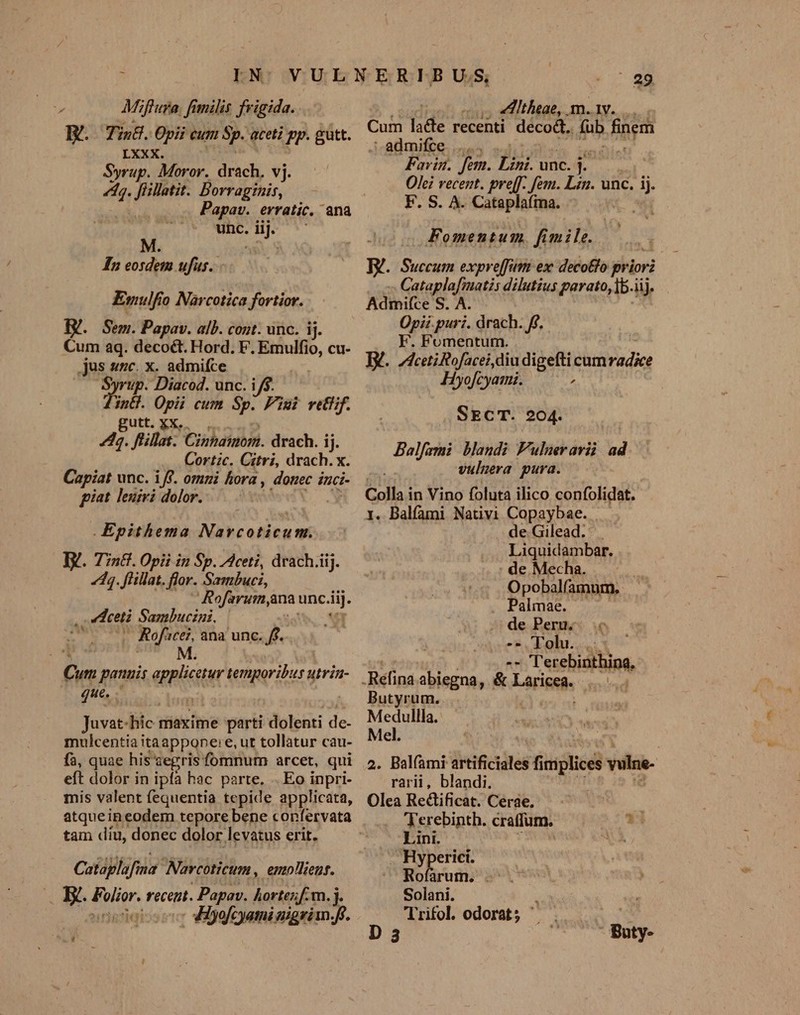 IN VULNERIBUS. 29
Miſtura ſimilis frigida.
℞. Tinct. Opii cum Sp. aceti pp. gutt.
LXXX.
Syrup. Moror. drach. vj.
Aq. ſtillatit. Borraginis,
Papav. erratic. ana
unc. iij.
M.
In eosdem uſus.
Emulſio Narcotica fortior.
℞. Sem. Papav. alb. cont. unc. ij.
Cum aq. decoct. Hord. F. Emulſio, cu-
jus unc. x. admiſce
Syrup. Diacod. unc. iſſ.
Tinct. Opii cum Sp. Vini rectif.
gutt. XX.
Aq. ſtillat. Cinnamom. drach. ij.
Cortic. Citri, drach. x.
Capiat unc. iſſ. omni hora, donec inci-
piat leniri dolor.
Epithema Narcoticum.
℞. Tinct. Opii in Sp. Aceti, drach.iij.
Aq. ſtillat. flor. Sambuci,
Roſarum,ana unc.iij.
Aceti Sambucini.
Roſacei, ana unc. ſſ.
M.
Cum pannis applicetur temporibus utrin-
que.
Juvat hic maxime parti dolenti de-
mulcentia ita apponere, ut tollatur cau-
ſa, quae his aegris ſomnum arcet, qui
eſt dolor in ipſa hac parte. Eo inpri-
mis valent ſequentia tepide applicata,
atque in eodem tepore bene conſervata
tam diu, donec dolor levatus erit.
Cataplaſma Narcoticum, emolliens.
℞. Folior. recent. Papav. hortenſ. m. j.
Hyoſcyami nigri m.ſſ.
Altheae, m. IV.
Cum lacte recenti decoct. ſub finem
admiſce
Farin. ſem. Lini. unc. j.
Olei recent. preſſ. ſem. Lin. unc. ij.
F. S. A. Cataplaſma.
Fomentum ſimile.
℞. Succum expreſſum ex decocto priori
Cataplaſmatis dilutius parato, ℔.iij.
Admiſce S. A.
Opii puri. drach. ſſ.
F. Fomentum.
℞. Aceti Roſacei, diu digeſti cum radice
Hyoſcyami.
SECT. 204.
Balſami blandi Vulnerarii ad
vulnera pura.
Colla in Vino ſoluta ilico conſolidat.
1. Balſami Nativi Copaybae.
de Gilead.
Liquidambar.
de Mecha.
Opobalſamum.
Palmae.
de Peru.
-- Tolu.
-- Terebinthina.
Reſina abiegna, & Laricea.
Butyrum.
Medullla.
Mel.
2. Balſami artificiales ſimplices vulne-
rarii, blandi.
Olea Rectificat. Cerae.
Terebinth. craſſum.
Lini.
Hyperici.
Roſarum.
Solani.
Trifol. odorat;
D 3 Buty-